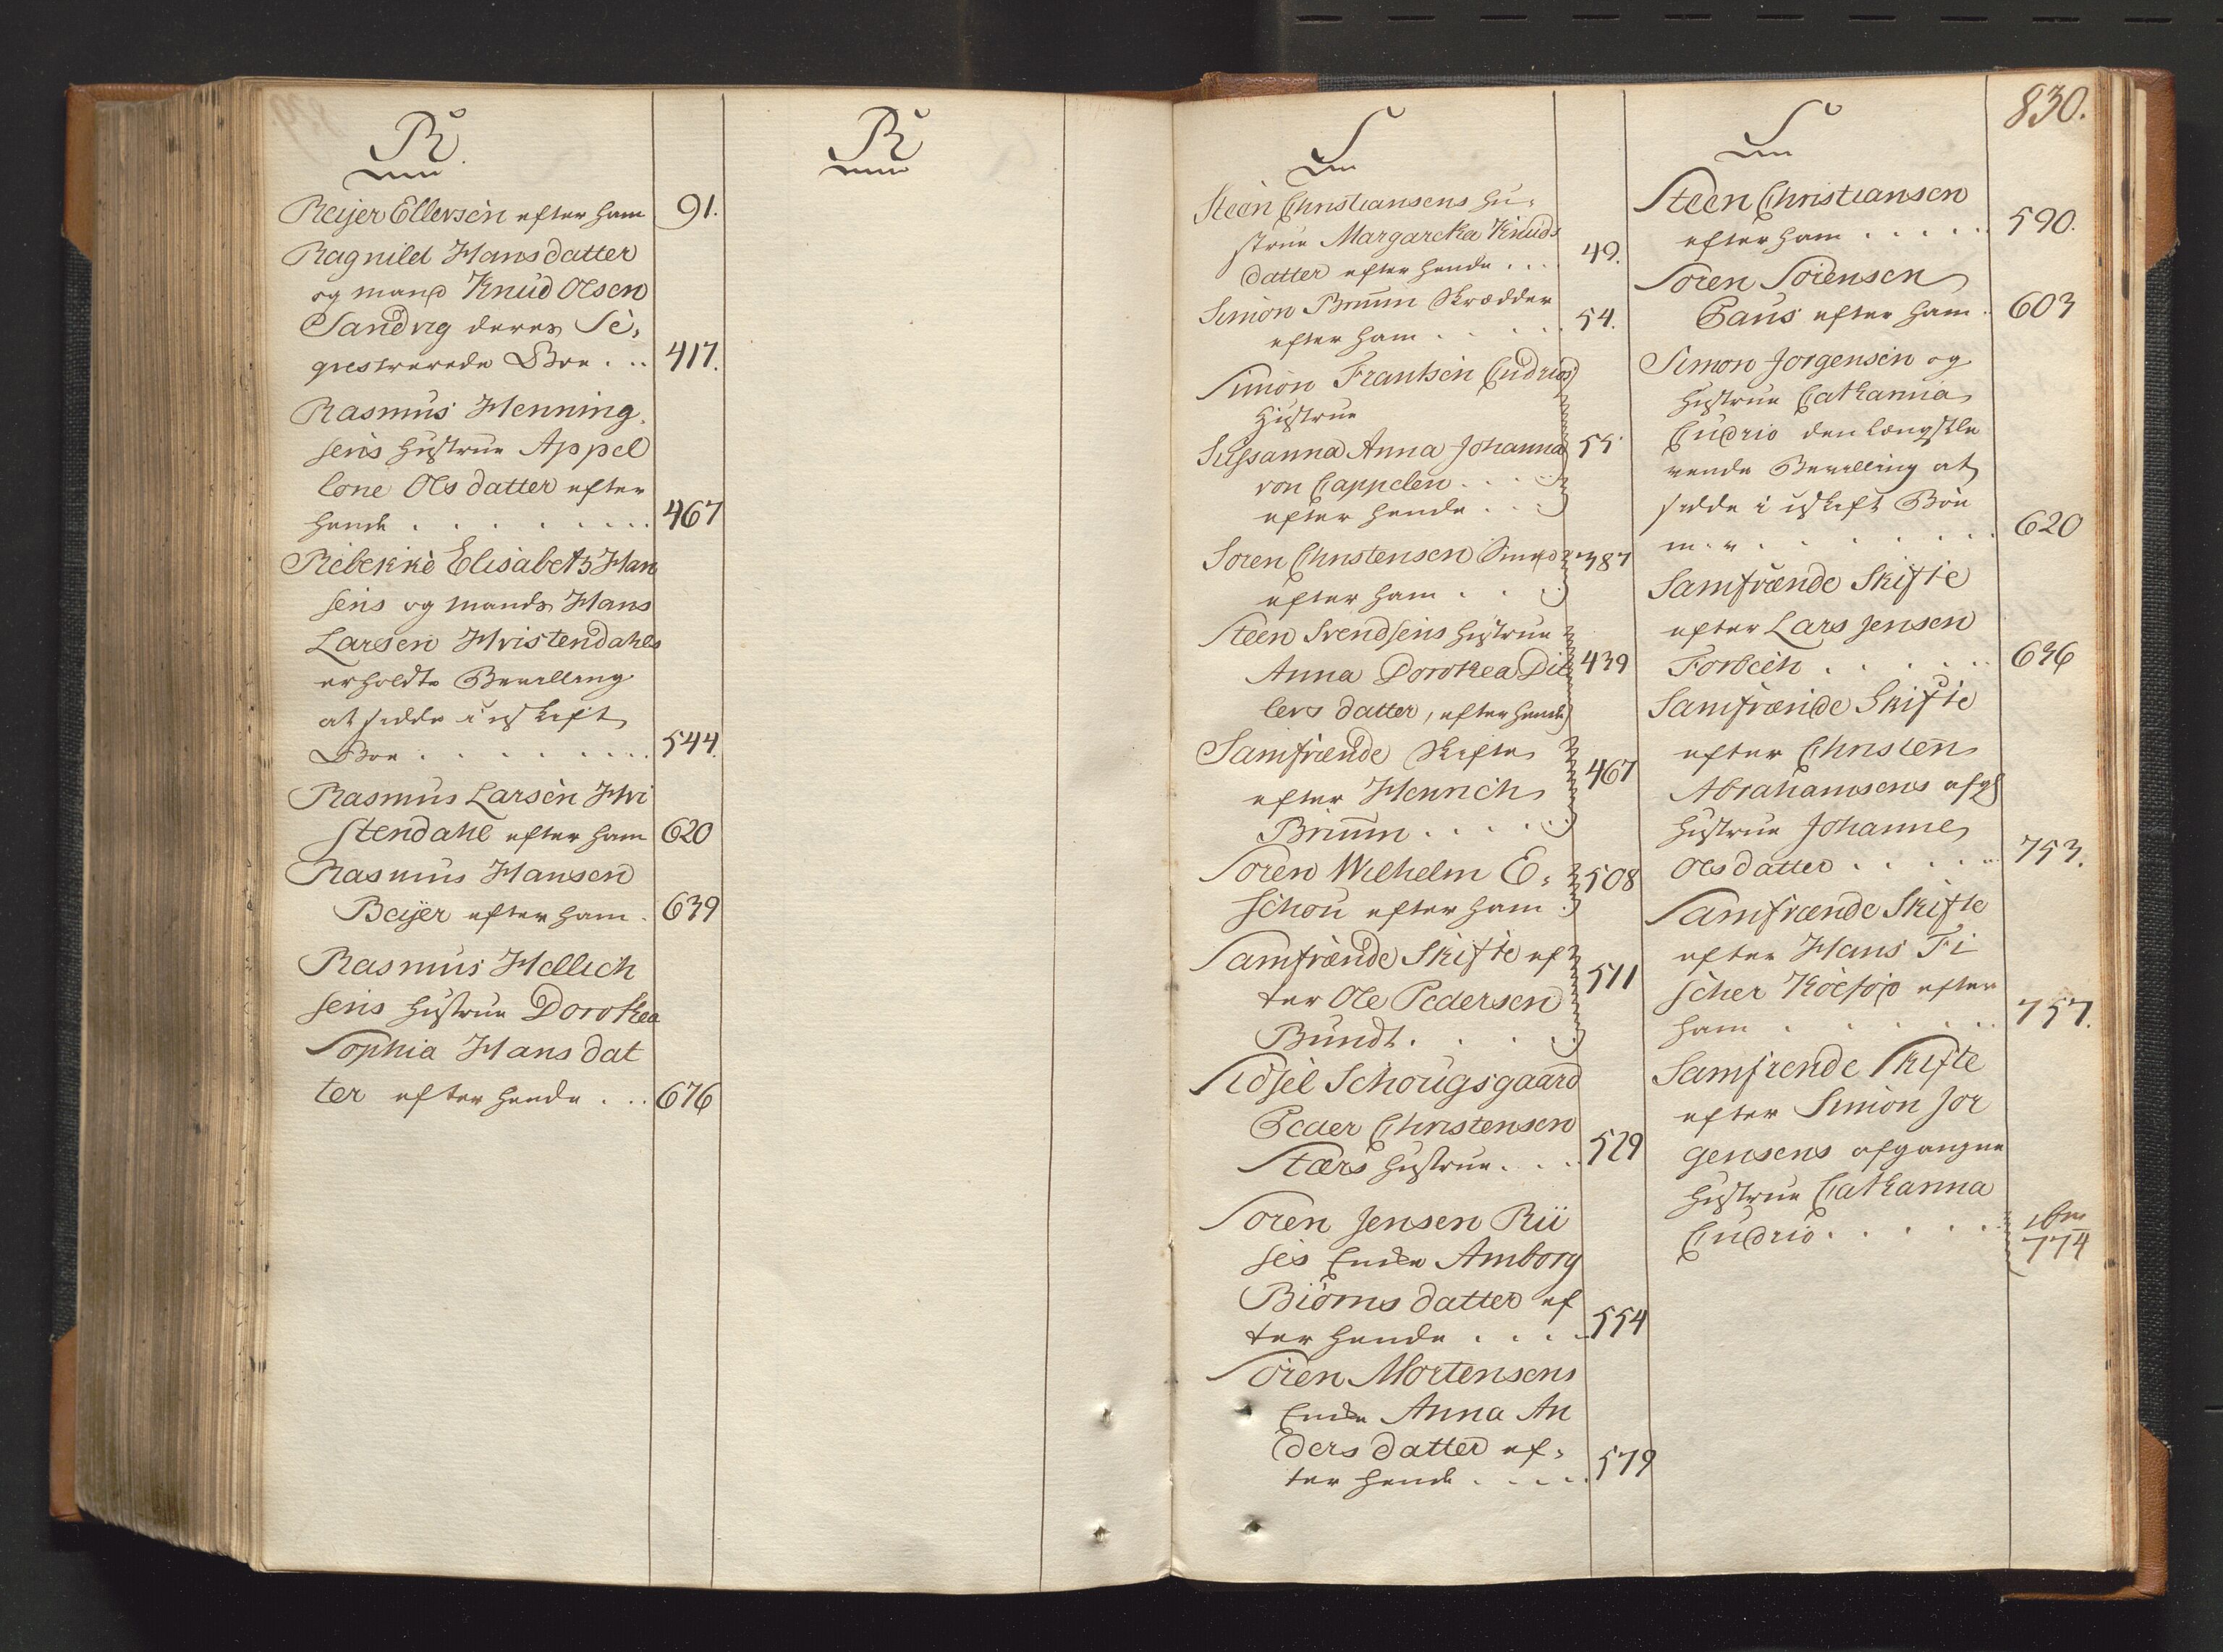 R
Reijer Ellersen efter ham 91.
Ragnild Hansdatter
og mand Knud Olsen
Sandvig deres Se,
qvestrerede Boe . . . 417.
Rasmus Henning,
sens Hustrue Appel
lone Olsdatter efter
hende . . . . . . . . 467
Rebekke Elisabeth Han
sens og mands Hans
Larsen Hvistendahls
erholdte Bevilling
at sidde i uskift
Boe . . . . . . . . 544.
Rasmus Larsen Hvi
stendahl efter ham 620
Rasmus Hansen
Beijer efter ham . 639
Rasmus Hellich
sens Hustrue Dorothea
Sophia Hansdat
ter efter hende . . . 676
R
S
Steen Christiansens Hu,
strue Margaretha Knuds
datter efter hende . . . 49.
Simon Bruun Skrædder
efter ham . . . . . 54.
Simon Frantsen Cudrios
Hustrue
Sussanna Anna Johanna 55
von Cappelen . . . .
efter hende . . .
Soren Christensen 387
efter ham . . .
Steen Svendsens Hustrue
Anna Dorothea Dit 439
levs datter, efter hende
Samfrænde Skifte
efter Henrich 467
Bruun . . . . .
Soren Wilhelm E, 508
schou efter ham .
Samfrænde Skifte ef
ter Ole Pedersen 511
Bundt . . . . .
Sidsel Schougsgaard
Peder Christensen
Stærs Hustrue . . . . 529
Soren Jensen Rii
ses Enke Amborg
Biörns datter ef
ter hende . . . . 554
Sören Mortensens
Enke Anna An
ders datter ef,
ter hende . . . . . 579
830.
S
Steen Christiansen
efter ham . . . . . 590.
Soren Sörensen
Paus efter ham . 603
Simon Jorgensen og
Hustrue Catharina
Cudrio den længstle
vende Bevilling at
sidde i uskift Boe
m. v. . . . . . . . . 620
Samfrænde Skifte
efter Lars Jensen
Forbech . . . . . . 636
Samfrænde Skifte
efter Christen
Abrahamsens afg
Hustrue Johanne
Olsdatter . . . . . 753.
Samfrænde Skifte
efter Hans Fi
scher efter
ham . . . . . . 757.
Samfrende Skifte
efter Simon Jor
gensens afgangne
Hustrue Catharina
Cudrio . . . . . .
774